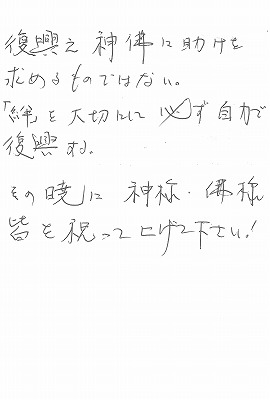 復興え神佛に助けを
求めるものではない。
「絆を大切にして必ず自力で
復興する。
その暁に神様・佛様
皆を祝って上げて下さい!